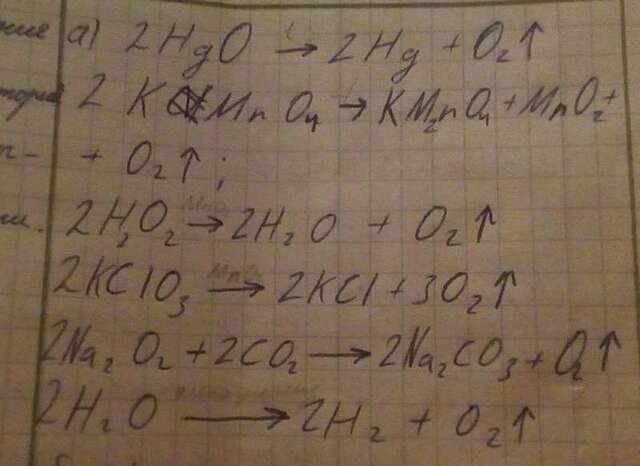 ние а) 2HgO →(t) 2Hg + O₂↑
2 KMnO₄ → K₂MnO₄ + MnO₂ +
+ O₂↑;
2H₂O₂ →(MnO₂) 2H₂O + O₂↑
2KClO₃ →(MnO₂) 2KCl + 3O₂↑
2Na₂O₂ + 2CO₂ → 2Na₂CO₃ + O₂↑
2H₂O → 2H₂ + O₂↑